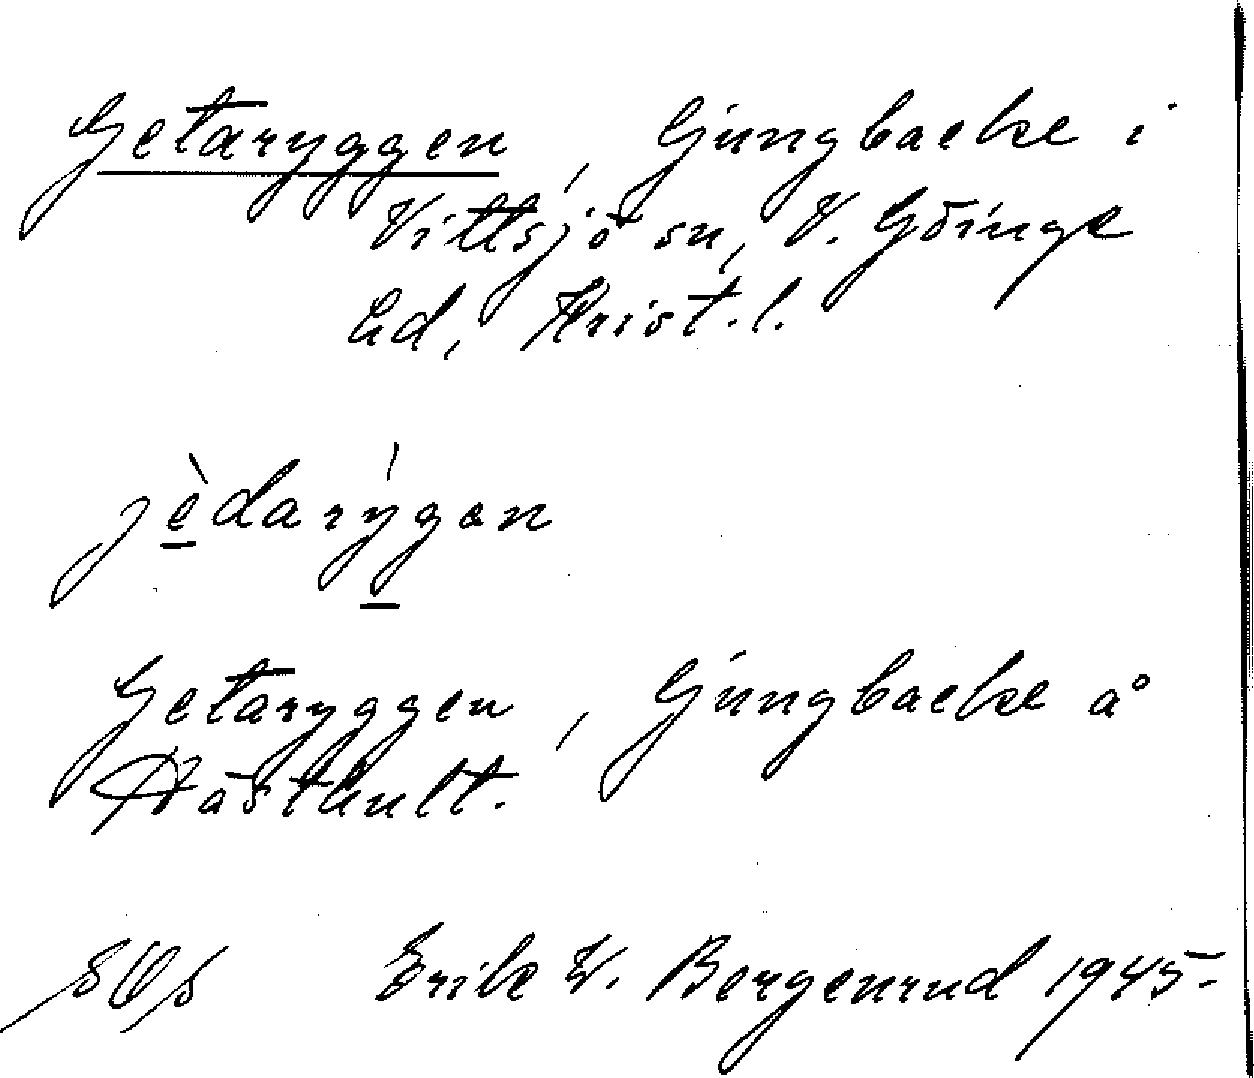 Getaryggen, Ljungbacke i
Vittsjö sn, V. Göinge
hd, Krist. l.
jèdarýgən
Getaryggen, Ljungbacke å
Hästhult.
Erik W. Bergenrud 1945.